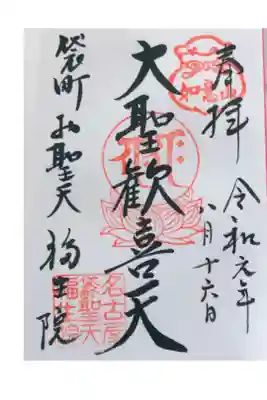 奉拝
令和元年
八月十六日
大聖歓喜天
袋町お聖天
福生院
如意
名古屋
袋聖天
福生院